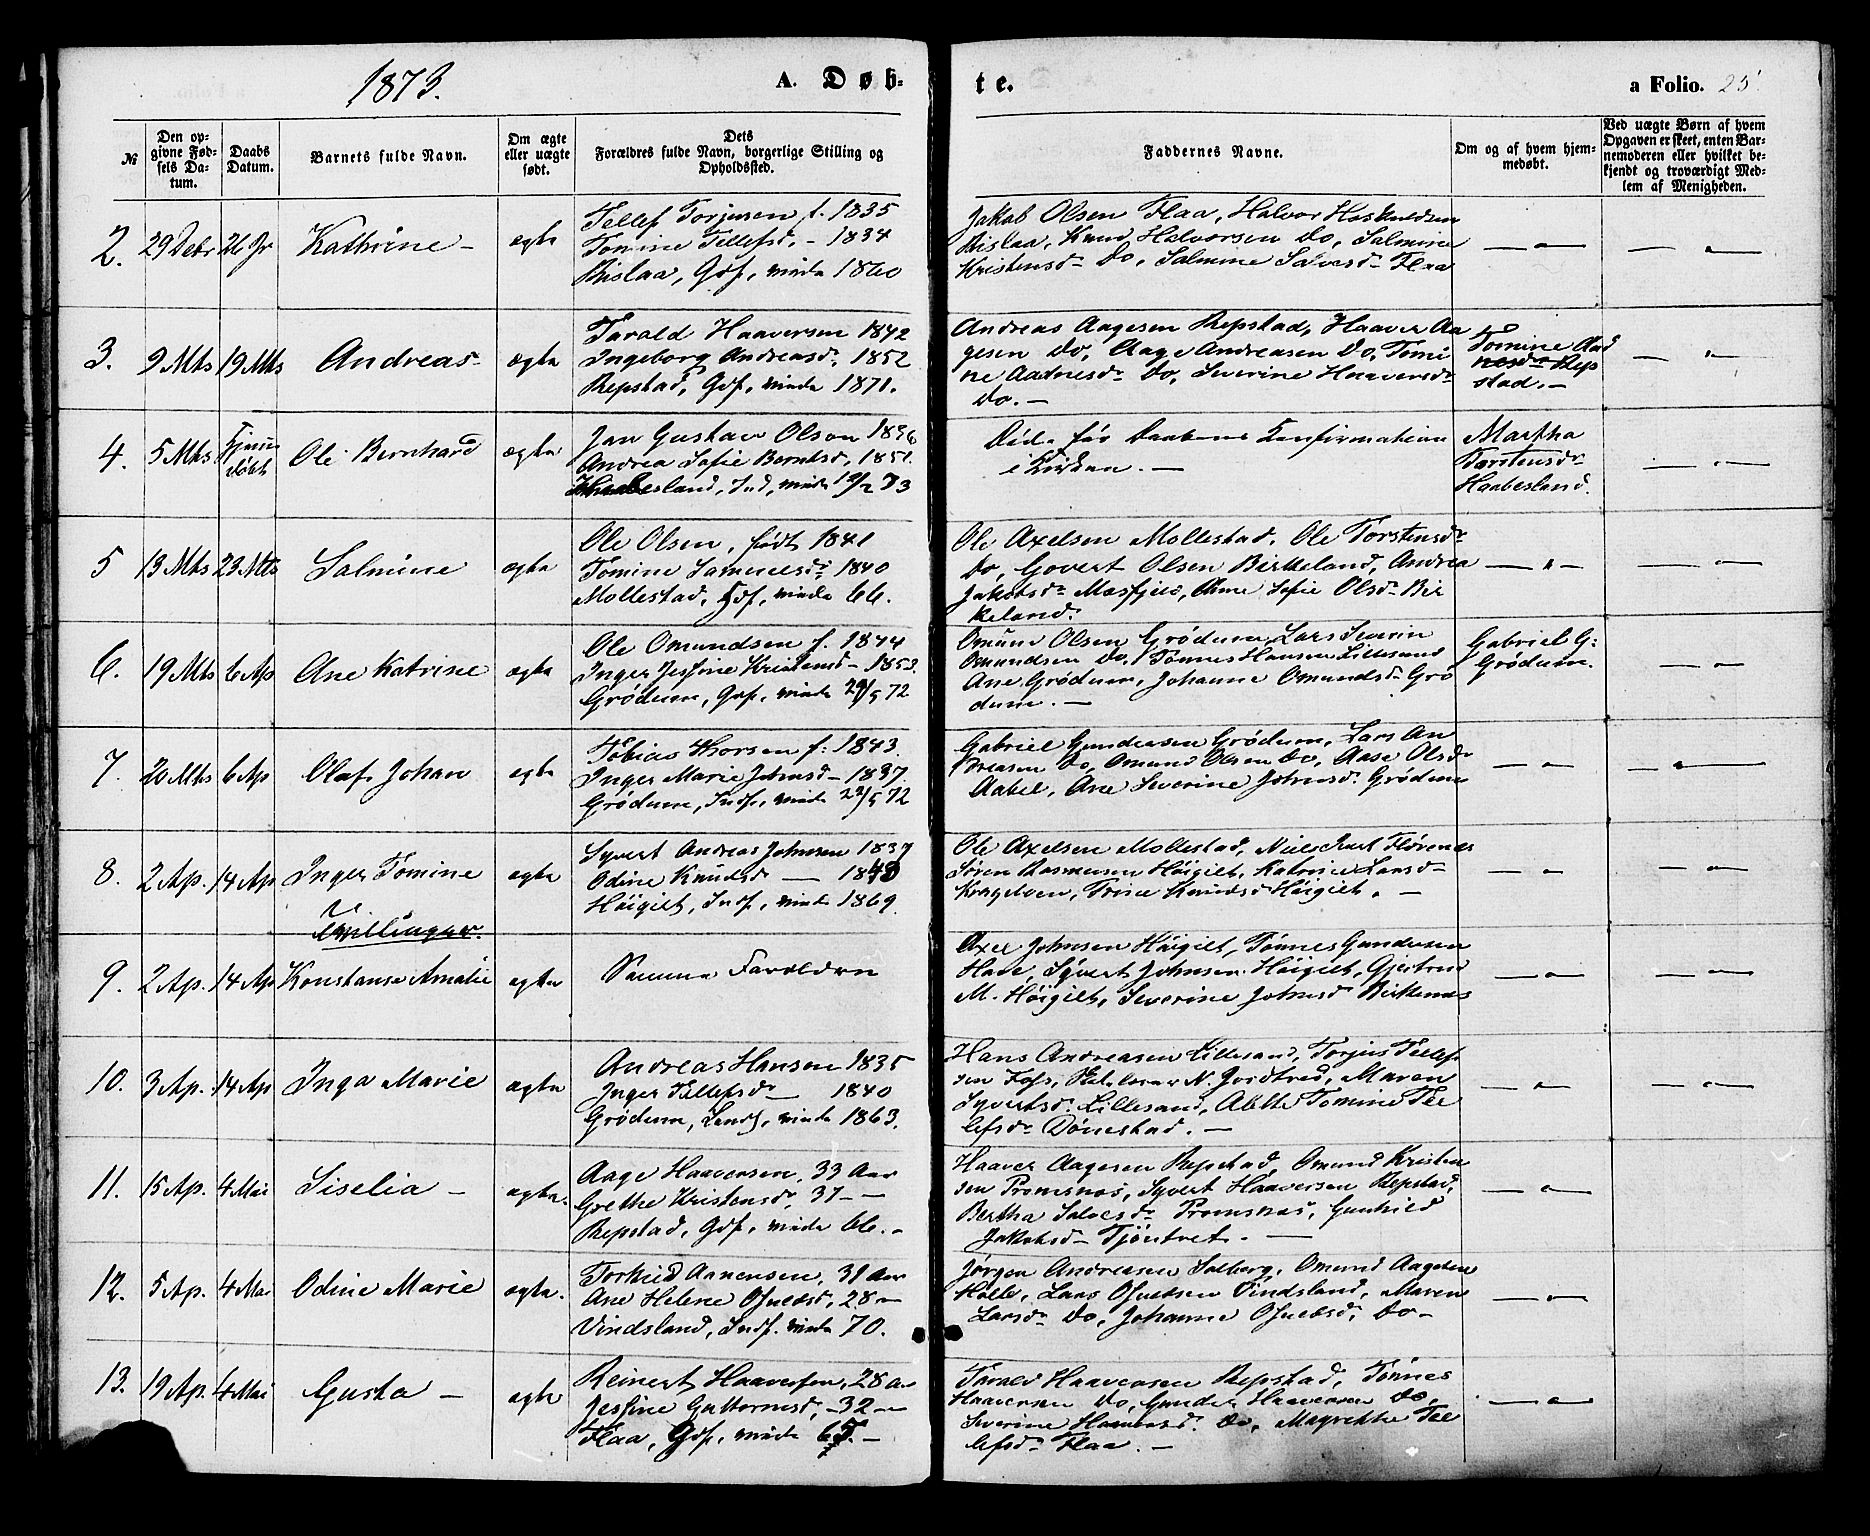 1873.
A. Døb-
te.
a Folio. 25
№
Den op-
givne Fød-
sels Da-
tum.
Daabs
Datum.
Barnets fulde Navn.
Om ægte
eller uægte
født.
Dets
Forældres fulde Navn, borgerlige Stilling og
Opholdssted.
Faddernes Navne.
Om og af hvem hjem-
medøbt.
Ved uægte Børn af hvem
Opgaven er skeet, enten Bar-
nemoderen eller hvilket be-
kjendt og troværdigt Med-
lem af Menigheden.
2. 29 Debr 26 Jr Kathrine - ægte
Tellef Torjusen f. 1835
Tomine Tellefsd. - 1834
Rislaa, Gdf, viede 1860
Jakob Olsen Flaa, Halvor Haskuldsen
Rislaa, Knud Halvorsen Do, Salmine
Kristensd Do, Salmine Salvesd Flaa
3. 9 Mts 19 Mts Andreas - ægte
Tarald Haaversen 1842
Ingeborg Andreasd. 1852
Repstad, Gdf, viede 1871.
Andreas Aagesen Repstad, Haaver Aa
gesen Do, Aage Andreasen Do, Tomi
ne Aadnesd Do, Severine Haaversd
Do. -
Tomine Aad
nesd Rep
stad. -
4. 5 Mts Hjemme
døbt Ole Bernhard ægte
Jan Gustav Olson 1836
Andrea Sofie Berntsd, 1851.
Haabesland, Ind, viede 19/2 73
Død før Daabens Konfirmation
i Kirken. -
Martha
Torstensd
Haabesland.
5 13 Mts 23 Mts Salmine ægte
Ole Olsen, født 1841
Tomine Samuelsd 1840
Mollestad, Gdf, viede 66.
Ole Axelsen Mollestad, Ole Torstensd
Do, Govert Olsen Birkeland, Andrea
Jakobsd Mosfjeld, Anne Sofie Olsd Bir
keland.
6. 19 Mts 6 Ap Ane Katrine ægte
Ole Omundsen f. 1844
Inger Jessine Kristensd - 1853.
Grødum, Gdf, viede 29/5 72
Omund Olsen Grødum, Lars Severin
Omundsen Do, Tønnes Hansen Lillesand
Ane Grødum, Johanne Omundsd Grø
dum. -
Gabriel G:
Grødum.
7. 20 Mts 6 Ap Olaf Johan ægte
Tobias Thorsen f: 1843.
Inger Marie Johnsd - 1837.
Grødum, Indf, viede 22/5 72
Gabriel Gundersen Grødum, Lars An
dreasen Do, Omund Olsen Do, Aase Olsd
Aabel, Ane Severine Johnsd. Grødum
8. 2 Ap. 14 Ap Inger Tomine ægte
Tvillinger.
Syvert Andreas Johnsen 1837
Odine Knudsd - 1843
Høigilt, Indf, viede 1869.
Ole Axelsen Mollestad, Niels Juul Flørenes
Søren Rasmussen Høigilt, Katrine Larsd
Kragelven, Trine Knudsd Høigilt. -
9. 2 Ap. 14 Ap Konstanse Amalie ægte
Samme Forældre
Axel Johnsen Høigilt, Tønnes Gundersen
Have, Syvert Johnsen Høigilt, Gjertrud
M. Høigilt, Severine Johnsd Birkenes
10. 3 Ap. 14 Ap Inga Marie ægte
Andreas Hansen 1835
Inger Tellefsd - 1840
Grødum, Lendf, viede 1863.
Hans Andreasen Lillesand, Torjus Tellef
sen Fos, N. Maren
Syvertsd. Lillesand, Alette Tomine Tel
lefsd Dønnestad. -
11. 15 Ap. 4 Mai Siselia - ægte.
Aage Haaversen, 33 Aar
Grethe Kristensd, 31 - -
Repstad, Gdf, viede 66. -
Haaver Aagesen Repstad, Omund Kristen
sen Promsnæs, Syvert Haaversen Repstad,
Bertha Salvesd Promsnæs, Gunhild
Jakobsd Tjøntvet. -
12. 5 Ap. 4 Mai Odine Marie ægte.
Torkild Aanensen, 31 Aar
Ane Helene Osuldsd, 28 -
Vindsland, Indf. viede 70.
Jørgen Andreasen Solberg, Omund Aagesen
Holte, Lars Osuldsen Vindsland, Maren
Larsd Do, Johanne Osuldsd, Do -
13. 19 Ap. 4 Mai Gusta - ægte
Reinert Haaversen, 28 Aar
Jessine Guttormsd, - 32 -
Flaa, Gdf, viede 65. -
Tarald Haaversen Repstad, Tønnes
Haaversen Do, Gunder Haaversen Do,
Severine Haaversd. Do, Magrethe Tel
lefsd Flaa. -